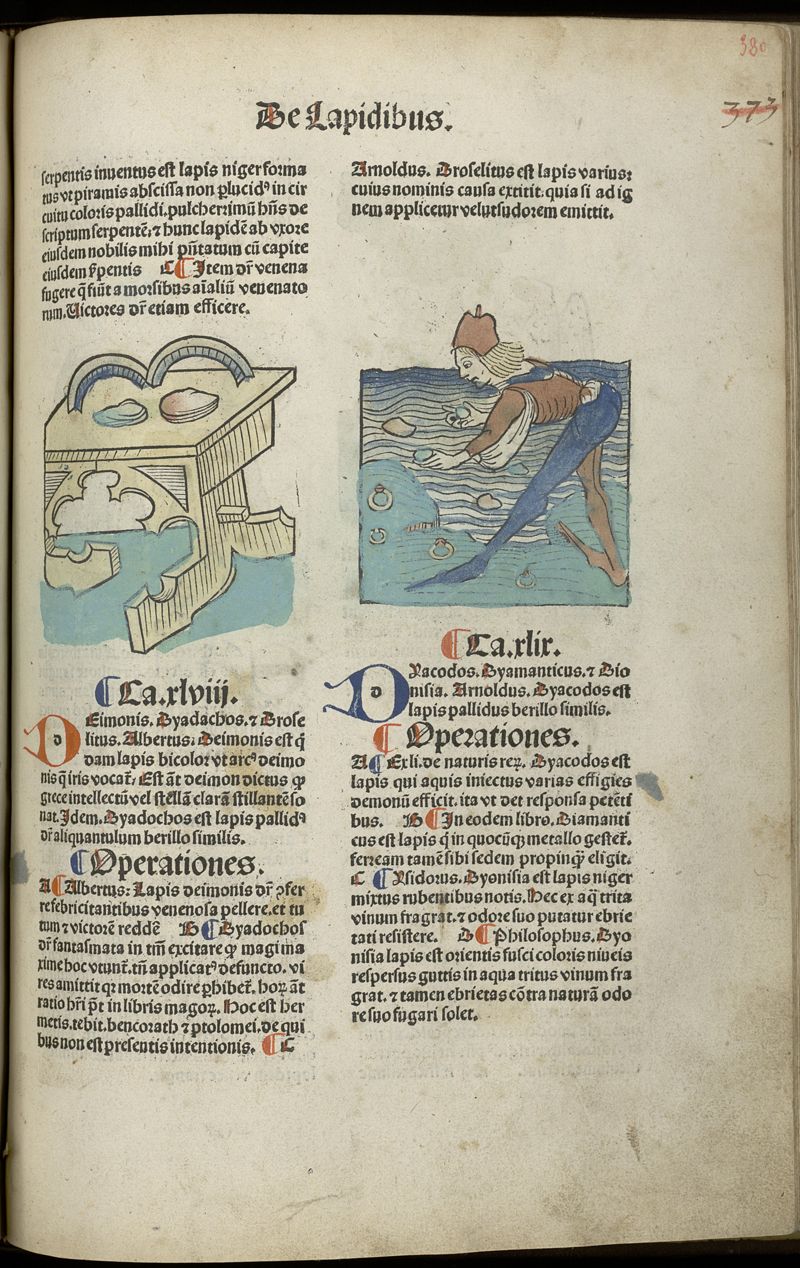 380
373
De Lapidibus.
serpentis inuentus est lapis niger forma
tus vt piramis abscissa non plucidꝰ in cir
cuitu coloris pallidi. pulcherrimū hn̄s de
scriptum serpentē. ⁊ hunc lapidē ab vxore
eiusdem nobilis mihi pn̄tatum cū capite
eiusdem ẜpentis C ¶ Item dr̄ venena
fugere q̄ fiūt a morsibus aīaliū venenato
rum. Uictores dr̄ etiam efficere.
¶ Ca. xlviij.
DEimonis. Dyadachos. ⁊ Drose
litus. Albertus: Deimonis est q̄
dam lapis bicolor vt arcꝰ deimo
nis q̄ iris vocat᷑. Est āt deimon dictus ꝙ
grece intellectū vel stellā clarā stillantē so
nat. Idem. Dyadochos est lapis pallidꝰ
dr̄ aliquantulum berillo similis.
¶ Operationes.
A ¶ Albertus: Lapis deimonis dr̄ ꝯfer
re febricitantibus ⁊ venenosa pellere. et tu
tum ⁊ victorē reddē B ¶ Dyadochos
dr̄ fantasmata in tm̄ excitare ꝙ magi ma
xime hoc vtunt᷑. tn̄ applicatꝰ defuncto. vi
res amittit qꝛ mortē odire ꝑhibet᷑. hoꝝ āt
ratio hr̄i pt̄ in libris magoꝝ. Hoc est her
metis. tebit. bencorath ⁊ ptolomei. de qui
bus non est presentis intentionis. ¶ C
Arnoldus. Droselitus est lapis varius:
cuius nominis causa extitit. quia si ad ig
nem applicetur velut sudorem emittit.
¶ Ca. xlix.
DYacodos. Dyamanticus. ⁊ Dio
nisia. Arnoldus. Dyacodos est
lapis pallidus berillo similis.
¶ Operationes.
A ¶ Ex li. de naturis reꝝ. Dyacodos est
lapis qui aquis iniectus varias effigies
demonū efficit. ita vt det responsa petēti
bus. B ¶ In eodem libro. Diamanti
cus est lapis q̄ in quocūqꝫ metallo gestet᷑.
ferream tamē sibi sedem propinqꝫ eligit.
C ¶ Ysidorus. Dyonisia est lapis niger
mixtus rubentibus notis. Hec ex aq̄ trita
vinum fragrat. ⁊ odore suo putatur ebrie
tati resistere. D ¶ Philosophus. Dyo
nisia lapis est orientis fusci coloris niueis
respersus guttis in aqua tritus vinum fra
grat. ⁊ tamen ebrietas cōtra naturā odo
re suo fugari solet.